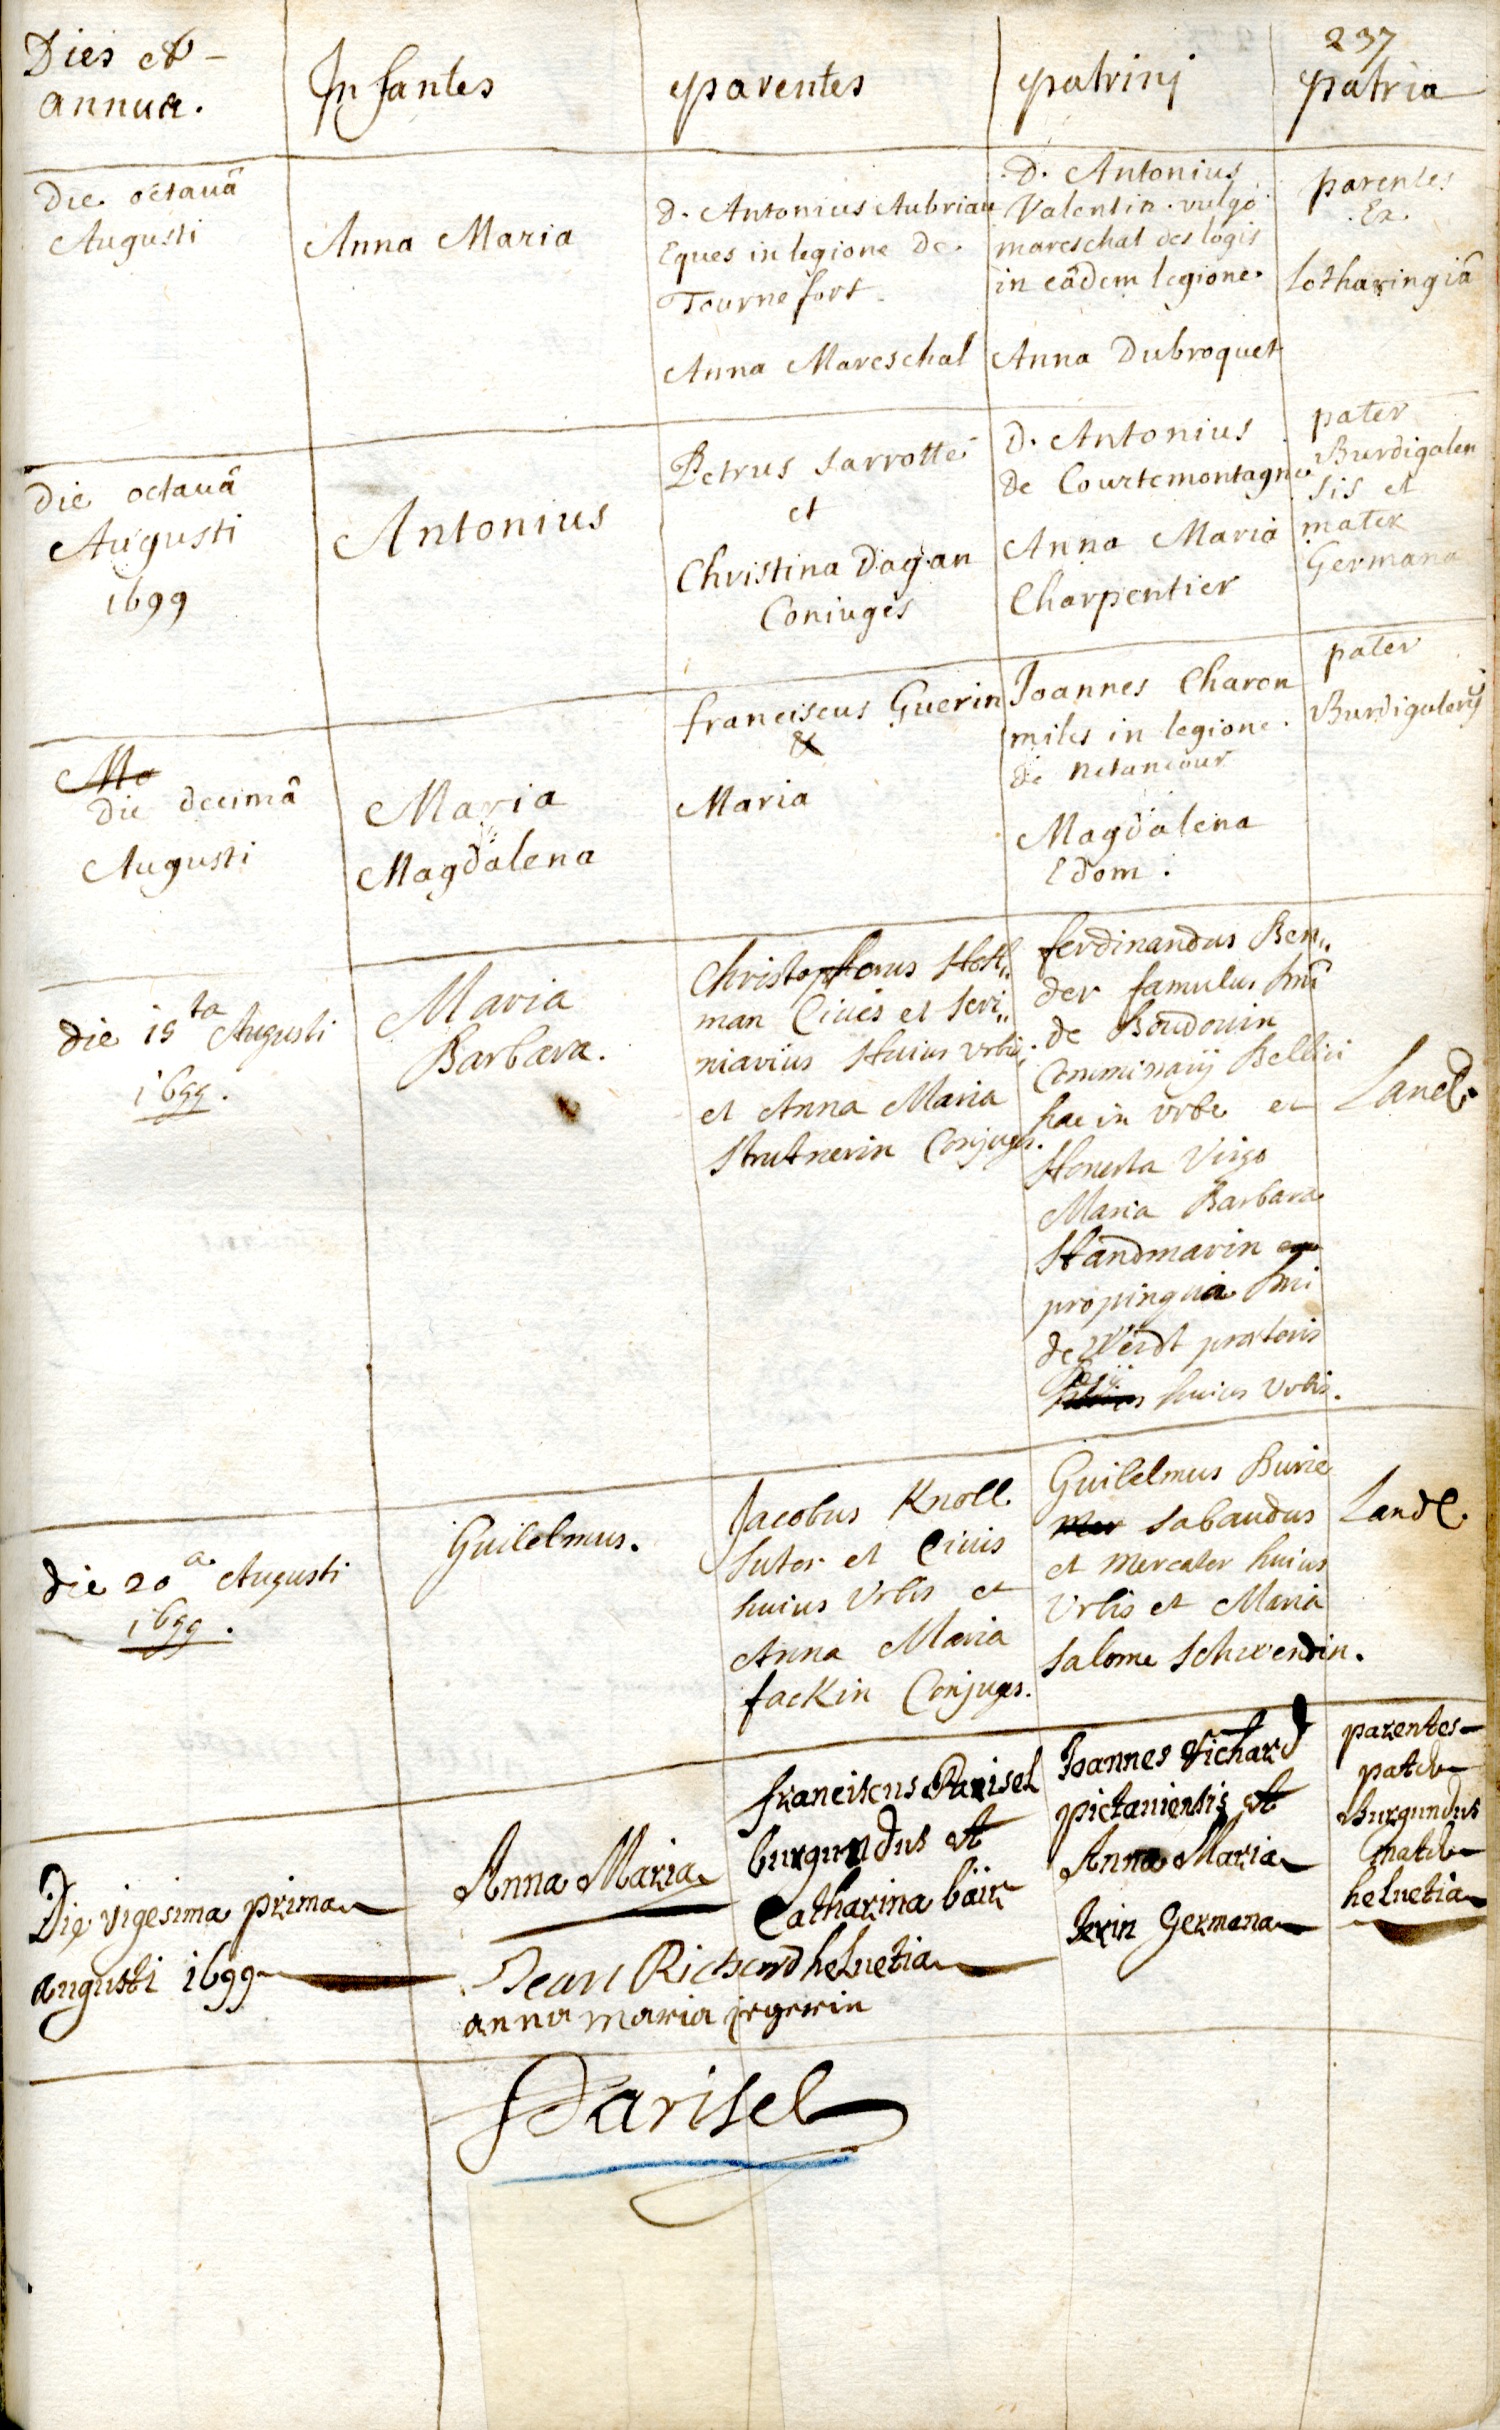 237
Dies et
annus.
Infantes
parentes
patrinj
patria
Die octauâ
Augusti
Anna Maria
D. Antonius Aubriau
Eques in legione de
Tournefort
Anna Mareschal
D. Antonius
Valentin. vulgo
mareschal des logis
in eâdem legione.
Anna Dubroquet
parentes
Ex
Lotharingiâ
Die octauâ
Augusti
1699
Antonius
Petrus Sarrotté
et
Christina Dagan
Coniuges
D. Antonius
de Courtemontagne
Anna Maria
Charpentier
pater
Burdigalen
sis et
mater
Germana
die decimâ
Augusti
Maria
Magdalena
franciscus Guerin
&
Maria
Joannes Charon
miles in legione
de netancour
Magdalena
Edom.
pater
die 15ta Augusti
1699.
Maria
Barbara.
Christophorus Hoff„
man Ciues et Scri„
niarius Huius Urbis
et Anna Maria
Strutnerin Conjuges.
ferdinandus Ben„
der famulus
de Boudouin
Commissarij Bellici
hac in vrbe et
Honesta Virgo
Maria Barbara
Handmarin
propinqua
de Werdt praetoris
Regii huius Urbis.
Land.
die 20a Augusti
1699.
Guilelmus.
Jacobus Knoll
Sutor et Ciuis
huius Urbis et
Anna Maria
fackin Conjuges.
Guilelmus Burie
Sabaudus
et Mercator huius
Urbis et Maria
Salome Schwendin.
Land.
Die vigesima prima
augusti 1699
Anna Maria
franciscus Parisel
burgundus et
Catharina bäir
helvetia
Joannes Richard
pictauiensis et
Anna Maria
Jerin Germana
parentes
pater
burgundus
mater
helvetia
Jean Richard
anna maria jegerin
Parisel